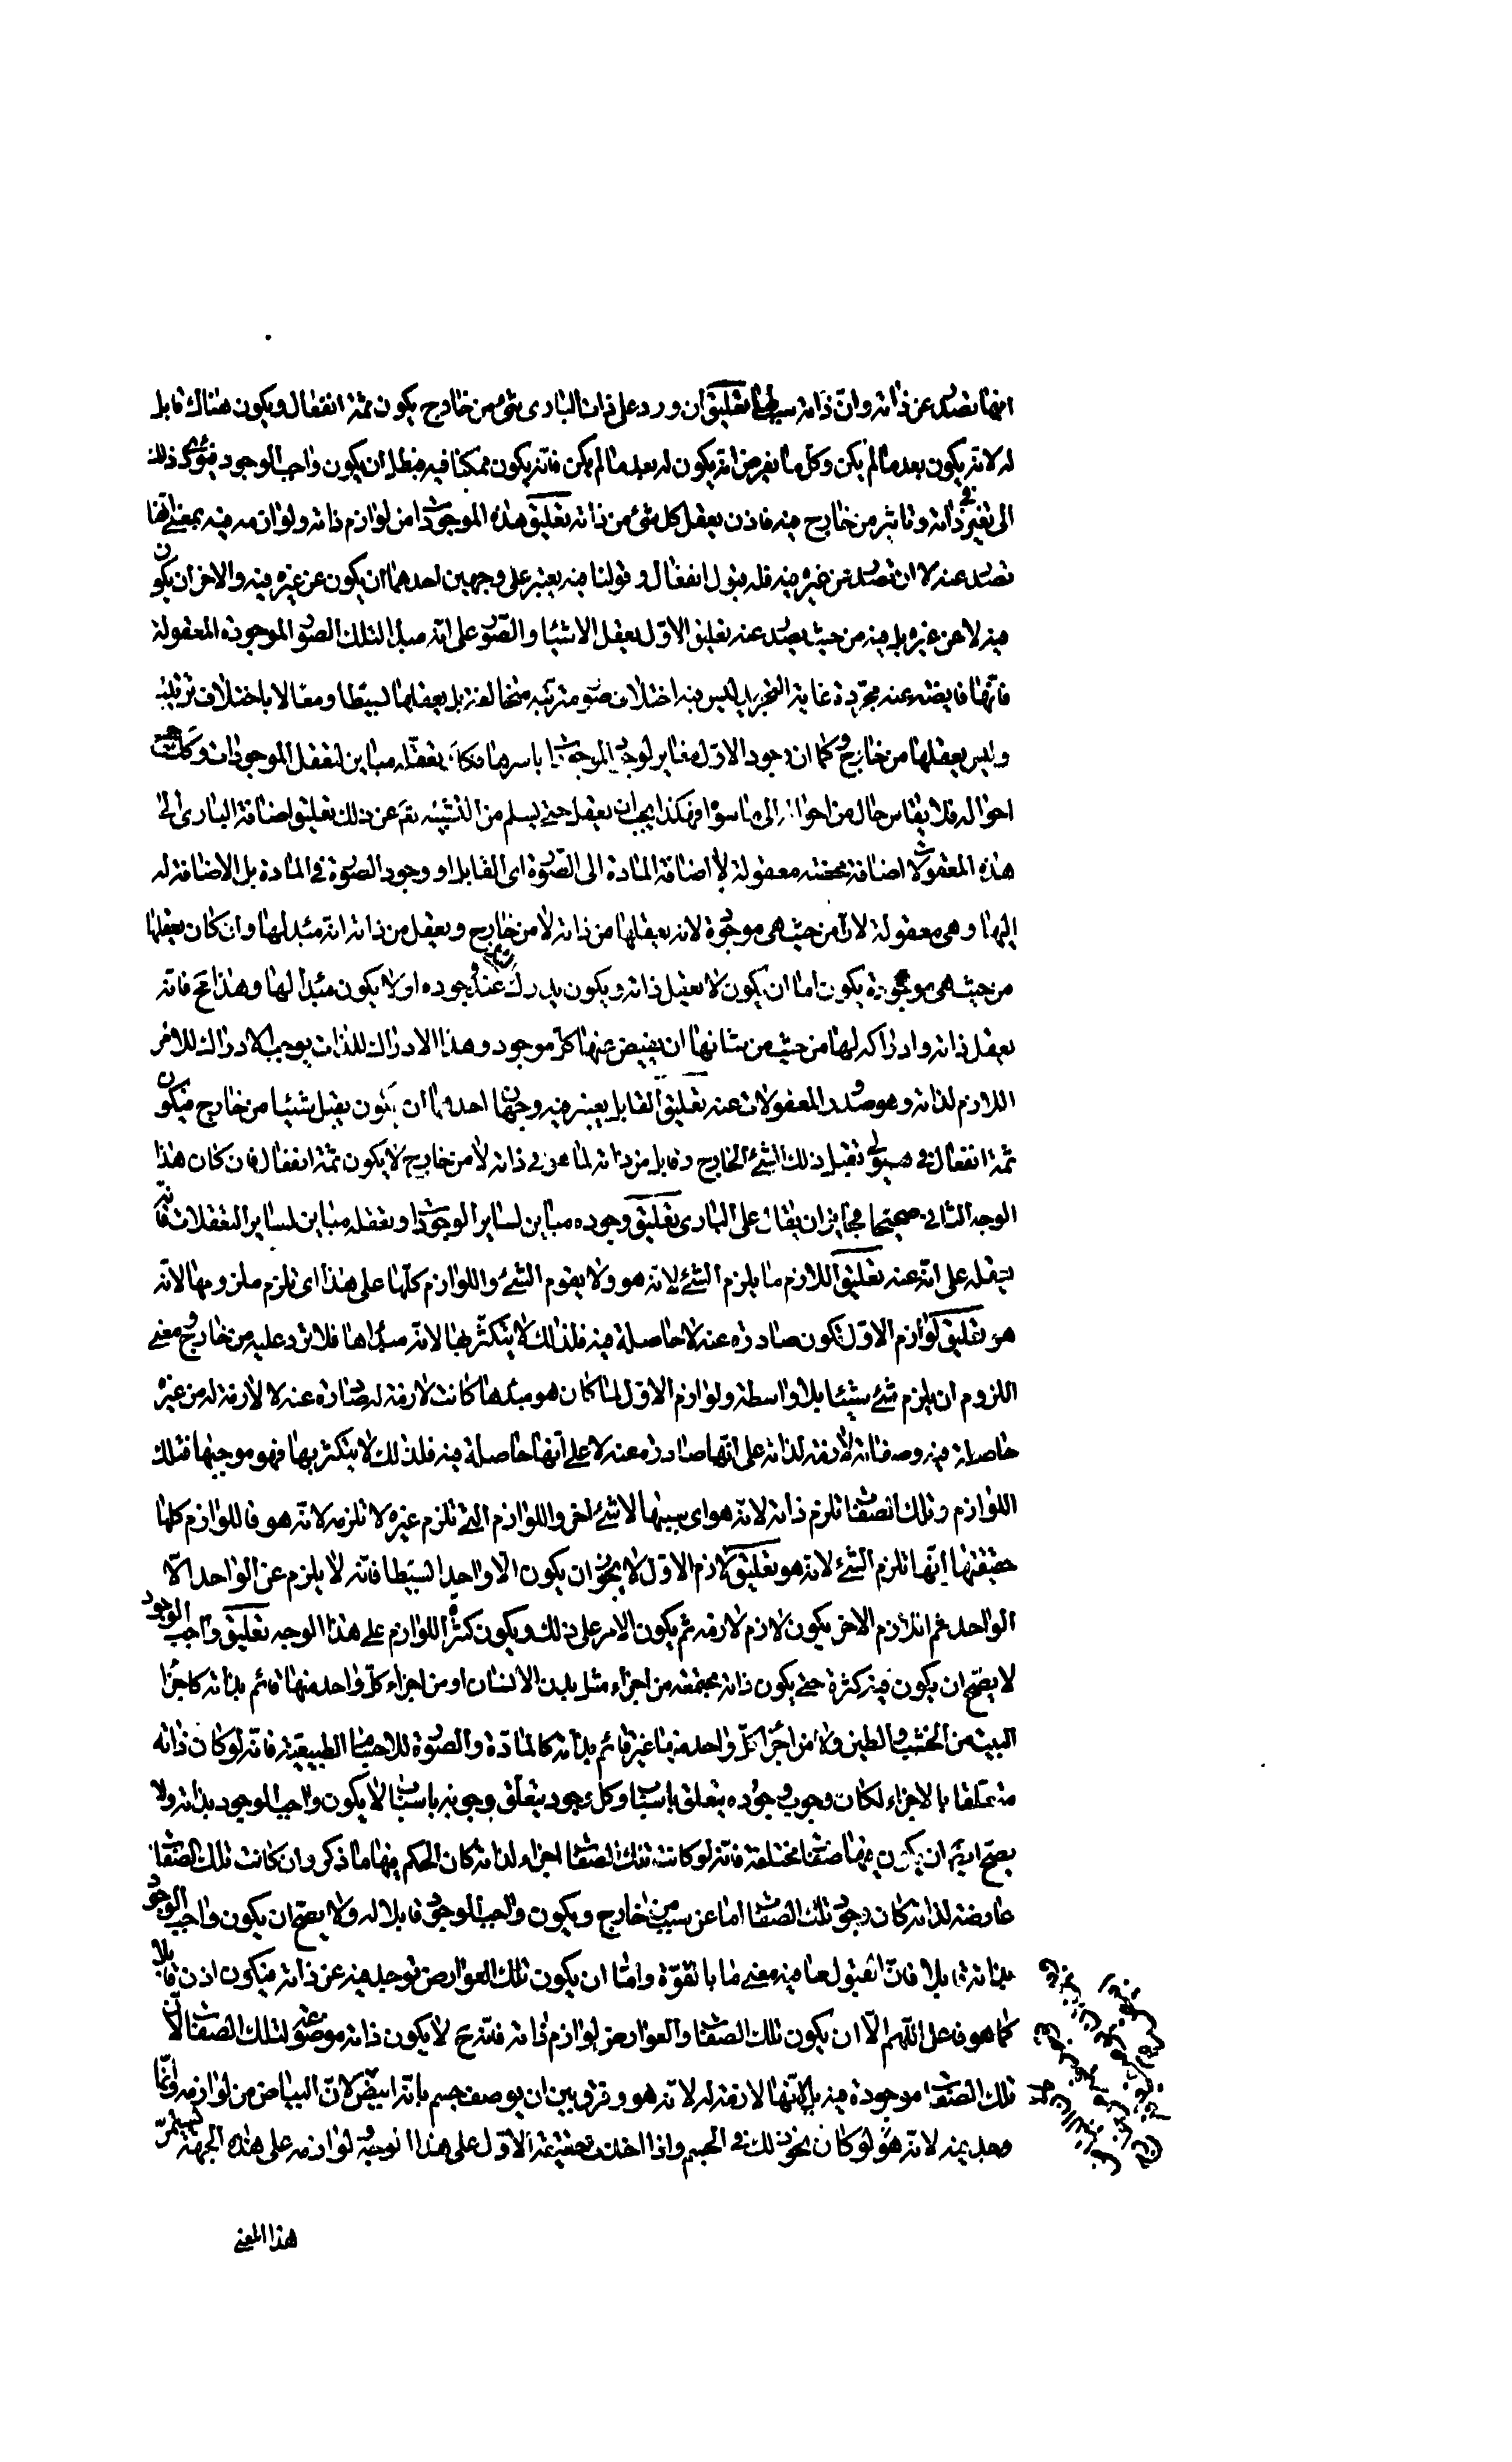 انها تصدر عن ذاته وان ذاته سبب لها تعليق ان ورد على ذات البارى شئ من خارج يكون ثمة انفعال ويكون هناك قابل
له لانه يكون بعد ما لم يكن وكل ما يفرض انه يكون له بعد ما لم يكن فانه يكون ممكنا فيه فبطل ان يكون واجب الوجود فيؤدى ذلك
الى تغير فى ذاته وتاثير من خارج فيه فاذن يعقل كل شئ من ذاته تعليق هذه الموجودات من لوازم ذاته ولوازمه فيه بمعنى انها
تصدر عنه لا ان تصدر عن غيره فيه فله قبول انفعال وقولنا فيه يعتبر على وجهين احدهما ان يكون عن غيره فيه والاخر ان يكون
فيه لا عن غيره بل فيه من حيث يصدر عنه تعليق الاول يعقل الاشيا والصور على انه مبدا لتلك الصور الموجودة المعقولة
فانها فايضه عنه مجردة غاية التجريد ليس فيه اختلاف صور مترتبه متخالفة بل يعقلها بسيطا ومعا لا باختلاف ترتيب
وليس يعقلها من خارج وكما ان وجود الاول مغاير لوجود الموجودات باسرها فكذا تعقله مباين لتعقل الموجودات وكذلك جميع
احواله فلا يقاس حال من احواله الى ما سواه فهكذا يجب ان يعقل حتى يسلم من التشبيه تع عن ذلك تعليق اضافة البارى الى
هذه المعقولات اضافة محضه معقولة لا اضافة المادة الى الصورة اى القابل او وجود الصورة فى المادة بل الاضافة له
اليها وهى معقولة لا من حيث هى موجودة لانه يعقلها من ذاته لا من خارج ويعقل من ذاته انه مبدا لها وان كان يعقلها
من حيث هى موجودة يكون اما ان يكون لا يعقل ذاته ويكون يدرك عند وجوده او لا يكون مبدا لها وهذا مح فانه
يعقل ذاته وادراكه لها من حيث من شانها ان يفيض عنها كل موجود وهذا الادراك للذات يوجب الادراك للامر
اللازم لذاته وهو صدور المعقولات عنه تعليق القابل يعتبر فيه وجهان احدهما ان يكون يقبل شيئا من خارج فيكون
ثمة انفعال فى هيولى تقبل ذلك الشئ الخارج وقابل من ذاته لما هو فى ذاته لا من خارج لا يكون ثمة انفعال فان كان هذا
الوجه الثانى صحيحا فجايز ان يقال على البارى تعليق وجوده مباين لساير الموجودات وتعقله مباين لساير التعقلات فانه
يعقله على انه عنه تعليق اللازم ما يلزم الشئ لانه هو ولا يقوم الشئ واللوازم كلها على هذا اى تلزم ملزومها لانه
هو تعليق لوازم الاول تكون صادرة عنه لا حاصلة فيه فلذلك لا يتكثر بها لانه مبداها فلا ترد عليه من خارج ومعنى
اللزوم ان يلزم شئ شيئا بلا واسطة ولوازم الاول لما كان هو مبدءها كانت لازمة له صادرة عنه لا لازمة له من غيره
حاصلة فيه وصفاته لازمة لذاته على انها صادرة عنه لا على انها حاصلة فيه فلذلك لا يتكثر بها فهو موجبها فتلك
اللوازم وتلك الصفات تلزم ذاته لانه هو اى سببها لا شئ اخر واللوازم التى تلزم غيره لا تلزمه لانه هو فاللوازم كلها
حقيقتها انها تلزم الشئ لانه هو تعليق لازم الاول لا يجوز ان يكون الا واحدا بسيطا فانه لا يلزم عن الواحد الا
الواحد ثم اللازم الاخر يكون لازم لازمه ثم يكون الامر على ذلك ويكون كثرة اللوازم على هذا الوجه تعليق واجب الوجود
لا يصح ان يكون فيه كثرة حتى يكون ذاته مجتمعه من اجزاء مثل بدن الانسان او من اجزاء كل واحد منها قائم بذاته كاجزا
البيت من الخشب والطين ولا من اجزا كل واحد منها غير قائم بذاته كالمادة والصورة للاجسام الطبيعية فانه لو كان ذاته
متعلقا بالاجزاء لكان وجوب وجوده يتعلق باسباب وكل وجود يتعلق وجوبه باسباب لا يكون واجب الوجود بذاته ولا
يصح ايضا ان يكون فيها صفات مختلفة فانه لو كانت تلك الصفات اجزاء لذاته كان الحكم فيها ما ذكر وان كانت تلك الصفات
عارضة لذاته كان وجود تلك الصفات اما عن سبب من خارج ويكون واجب الوجود قابلا له ولا يصح ان يكون واجب الوجود
بذاته قابلا فان القبول لما فيه معنى ما بالقوة واما ان يكون تلك العوارض توجد فيه عن ذاته فيكون اذن قابلا
كما هو فاعل اللهم الا ان يكون تلك الصفات والعوارض لوازم ذاته فانه ح لا يكون ذاته موضوعة لتلك الصفات لان
تلك الصفات موجودة فيه بل لانها لازمة له لانه هو وفرق بين ان يوصف جسم بانه ابيض لان البياض من لوازمه وانما
وجد فيه لانه هو لو كان يجوز ذلك فى الجسم واذا اخذت حقيقة الاول على هذا الوجه ولوازمه على هذه الجهة استمر
هذا المعنى